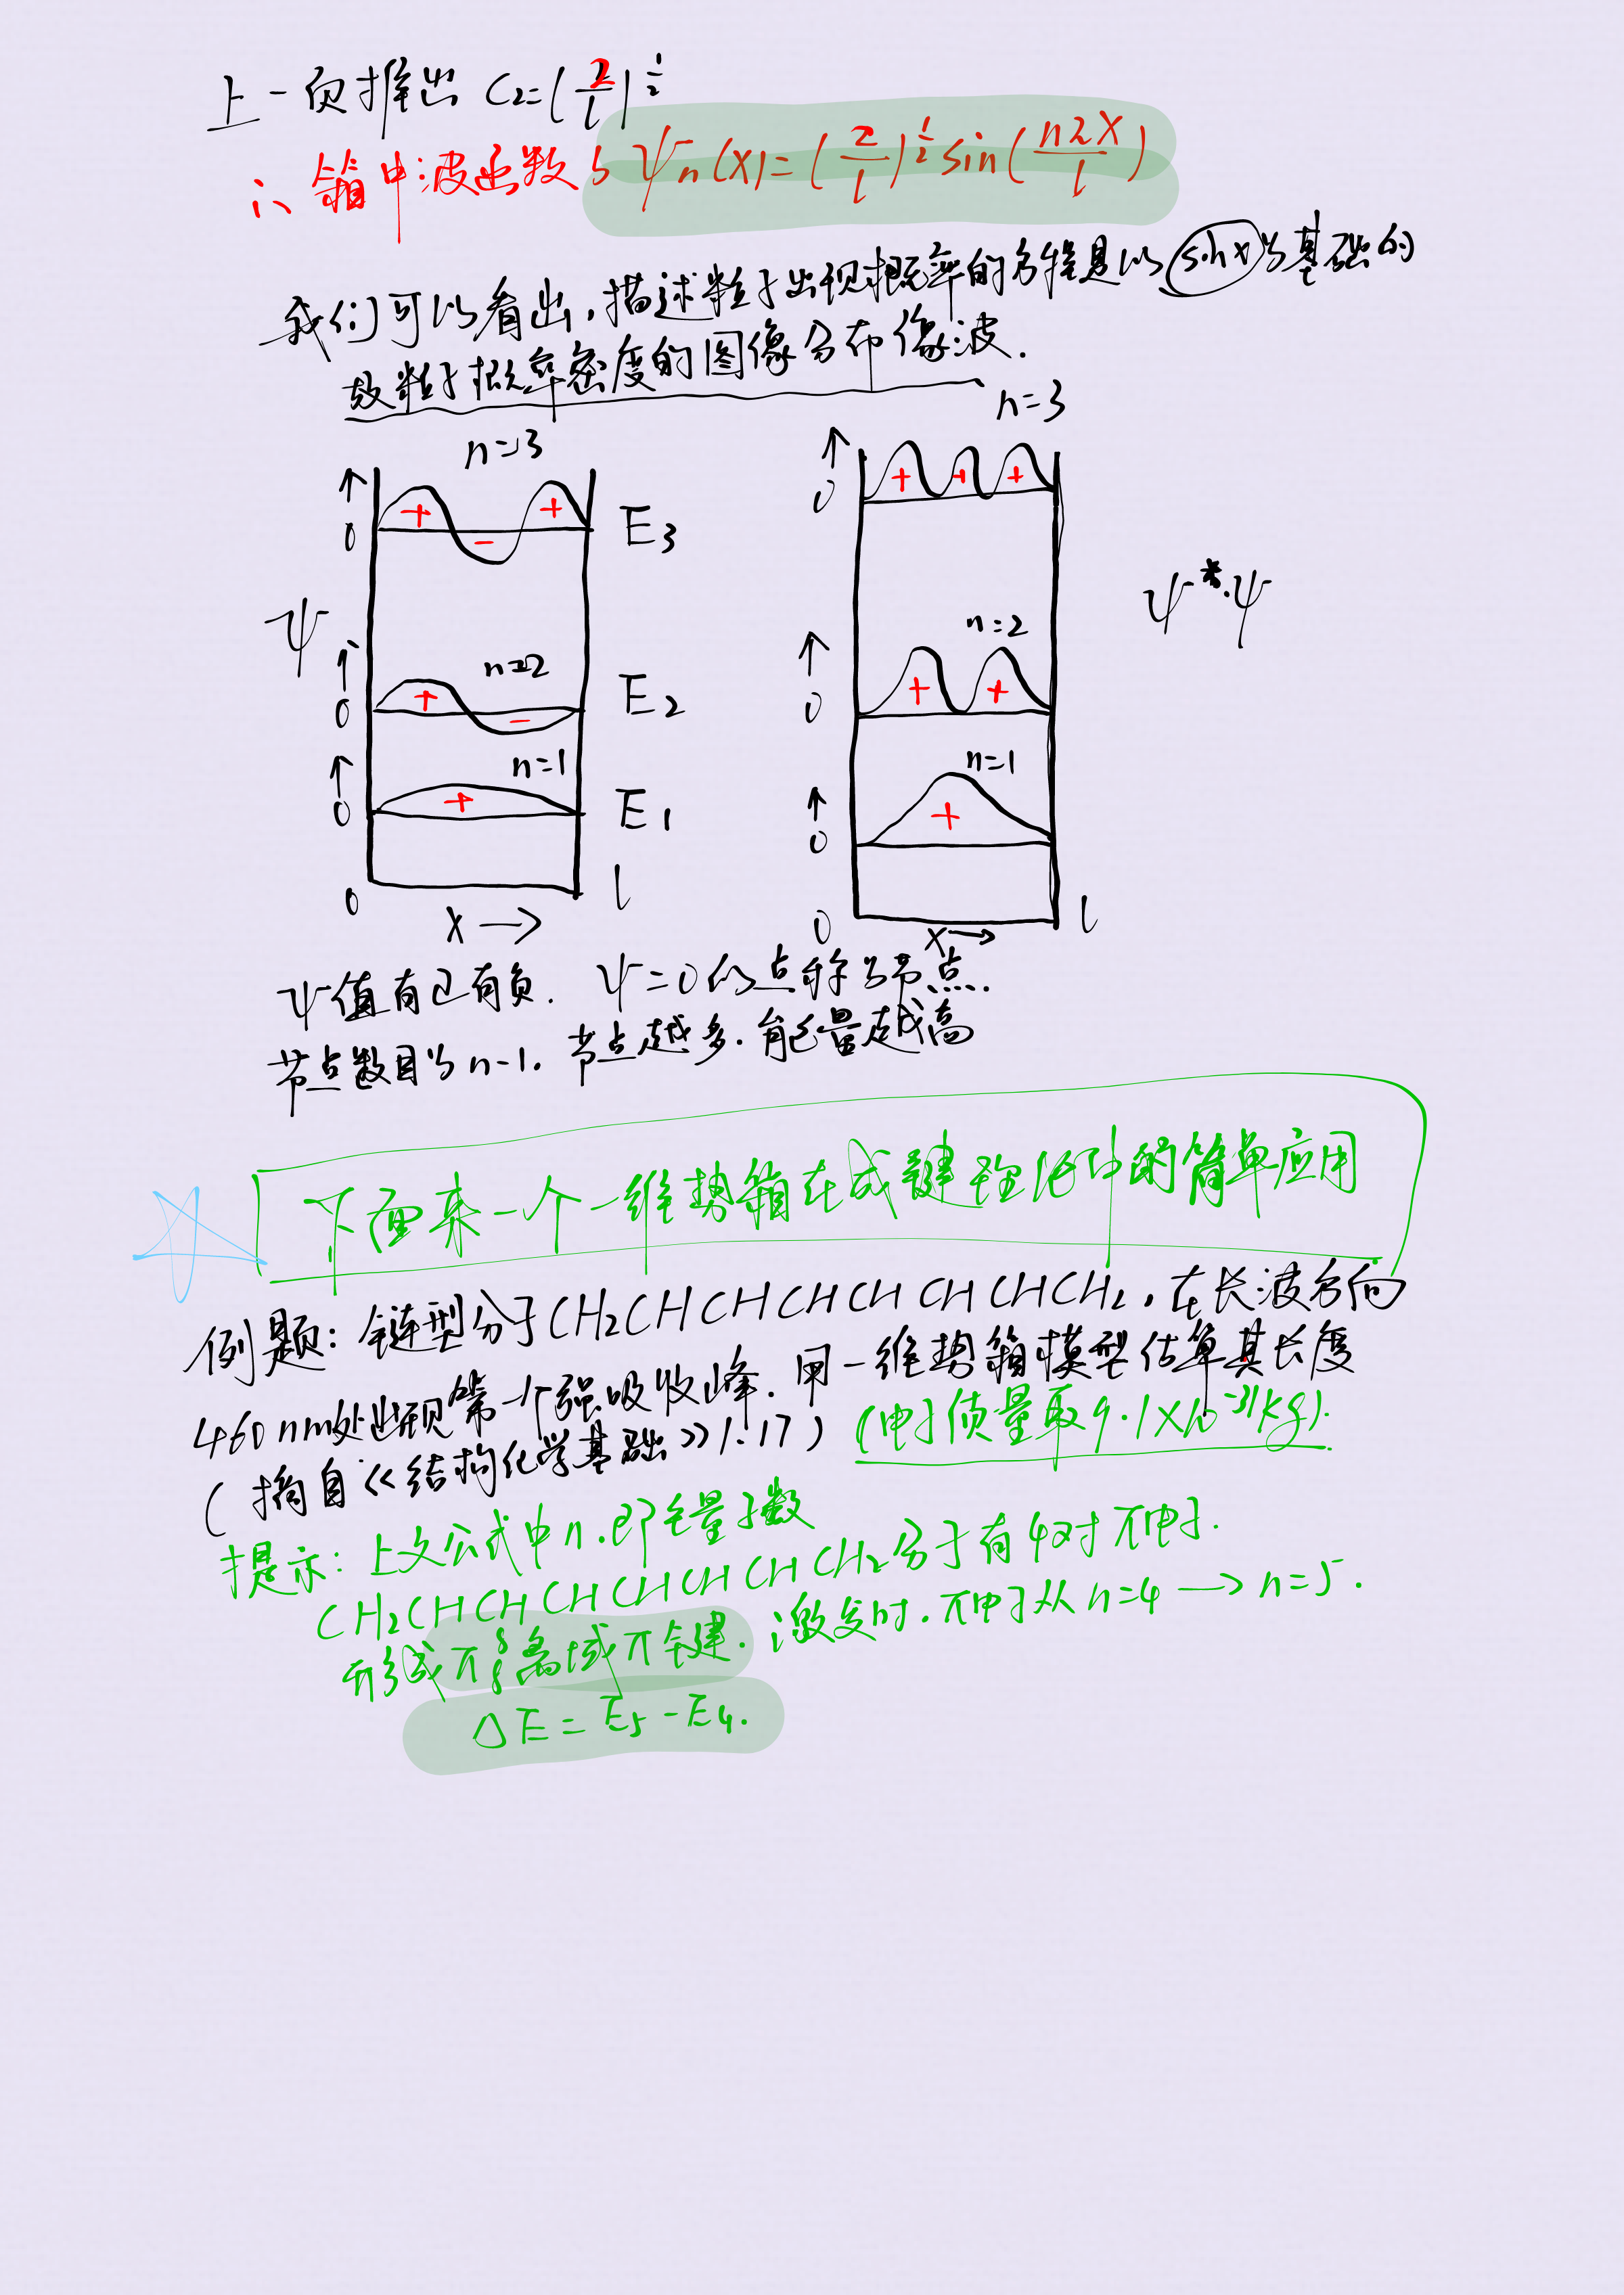 上一页推出 C₂=(2/l)^½
∴ 箱中波函数为 ψn(x)=(2/l)^½ sin(nπx/l)
我们可以看出,描述粒子出现概率的方程是以 sinx 为基础的
故粒子概率密度的图像分布像波.
n=3
n=3
↑
0
+
-
+
E₃
↑
0
+
+
+
ψ
ψ*·ψ
↑
0
n=2
+
-
E₂
↑
0
n=2
+
+
↑
0
n=1
+
E₁
↑
0
n=1
+
0
l
x →
0
l
x →
ψ值有正有负. ψ=0的点称为节点.
节点数目为n-1. 节点越多.能量越高
下面来一个一维势箱在成键理论中的简单应用
例题: 链型分子CH₂CHCHCHCHCHCHCH₂,在长波方向
460nm处出现第一个强吸收峰.用一维势箱模型估算其长度
(摘自《结构化学基础》1.17) (电子质量取9.1×10⁻³¹kg).
提示: 上文公式中n.即是量子数
CH₂CHCHCHCHCHCHCH₂分子有4对π电子.
形成π₈⁸离域π键.激发时.π电子从n=4→n=5.
△E=E₅-E₄.